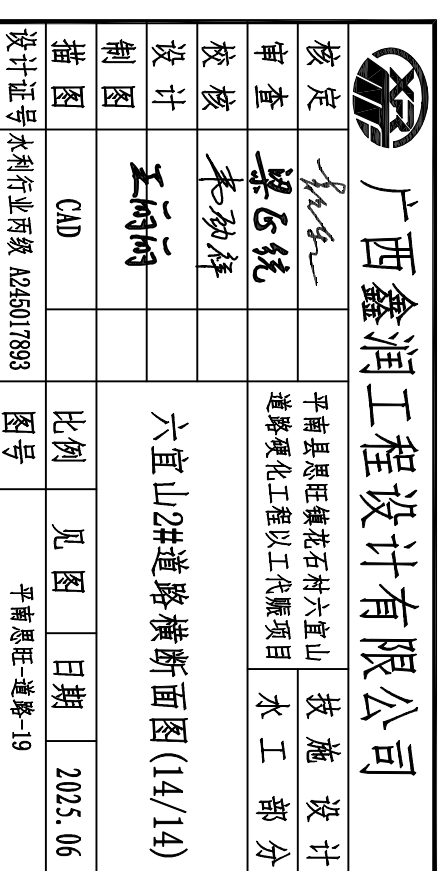 广西鑫润工程设计有限公司
核定
平南县思旺镇花石村六宜山
道路硬化工程以工代赈项目
技施 设计
审查
水工 部分
校核
设计
六宜山2#道路横断面图(14/14)
制图
描图 CAD
比例 见图 日期 2025.06
设计证号 水利行业丙级 A245017893
图号 平南思旺-道路-19